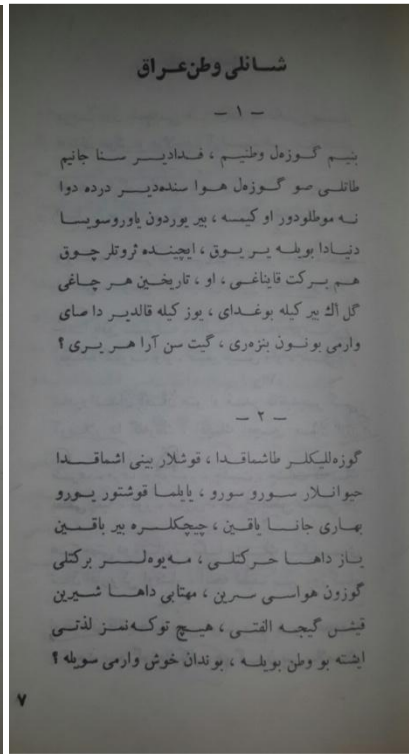 شانلی وطن عراق
— ١ —
بنیم گوزەل وطنیم ، فدادیر سنا جانیم
طاتلی صو گوزەل هوا سندەدیر دردە دوا
نە موطلودور او کیمسە ، بیر یوردون یاوروسویسا
دنیادا بویلە یر یوق ، ایچیندە ثروتلر چوق
هم برکت قایناغی ، او ، تاریخین هر چاغی
گل اك بیر کیلە بوغدای ، یوز کیلە قالدیر دا صای
وارمی بونون بنزەری ، گیت سن آرا هر یری ؟
— ٢ —
گوزەللیکلر طاشماقدا ، قوشلار بینی اشماقدا
حیوانلار سورو سورو ، یایلما قوشتور یورو
بهاری جانا یاقین ، چیچکلرە بیر باقین
یاز داها حرکتلی ، مەیوەلر برکتلی
گوزون هواسی سرین ، مهتابی داها شیرین
قیشن گیجە الفتی ، هیچ توکەنمز لذتی
ایشتە بو وطن بویلە ، بوندان خوش وارمی سویلە ؟
٧